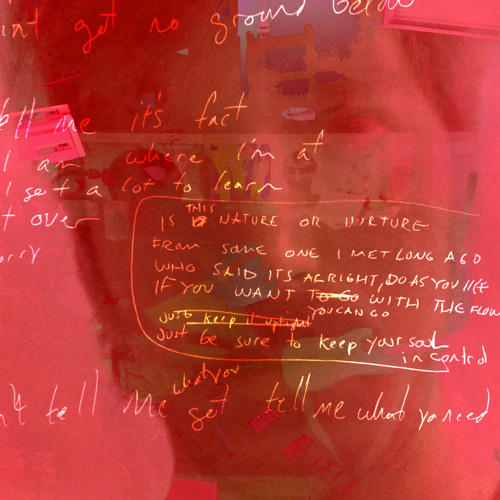 get no ground below
me it's fact
I am where i'm at
I got a lot to learn
t over
IS THIS NATURE OR NURTURE
FROM SOME ONE I MET LONG AGO
WHO SAID ITS ALRIGHT, DO AS YOU LIKE
IF YOU WANT TO GO WITH THE FLOW
YOU CAN GO
JUST keep it uptight
JUST be sure to keep your soul
in control
what you
't tell Me get tell me what you need